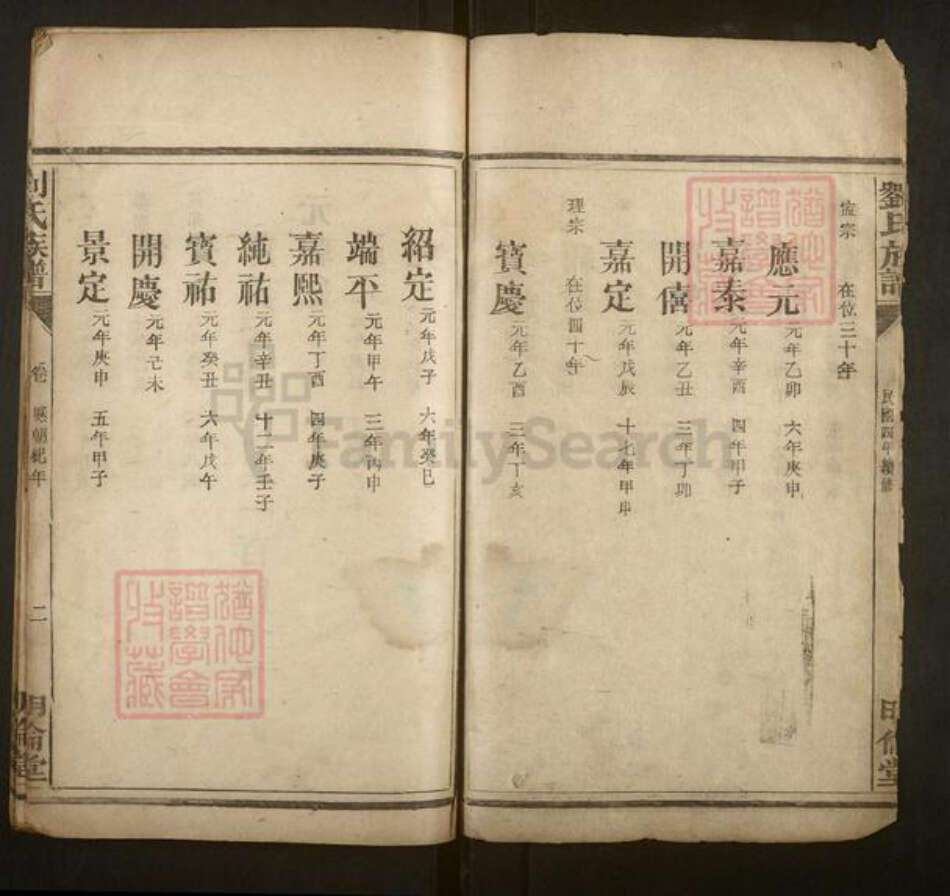 劉氏族譜
民國四年續修
明倫堂
寧宗 在位三十年
應元 元年乙卯 六年庚申
嘉泰 元年辛酉 四年甲子
開僖 元年乙丑 三年丁卯
嘉定 元年戊辰 十七年甲申
理宗 在位四十年
寶慶 元年乙酉 三年丁亥
紹定 元年戊子 六年癸巳
端平 元年甲午 三年丙申
嘉熙 元年丁酉 四年庚子
純祐 元年辛丑 十二年壬子
寶祐 元年癸丑 六年戊午
開慶 元年己未
景定 元年庚申 五年甲子
劉氏族譜
卷 歷朝紀年
二
明倫堂
譜學會
收藏
FamilySearch